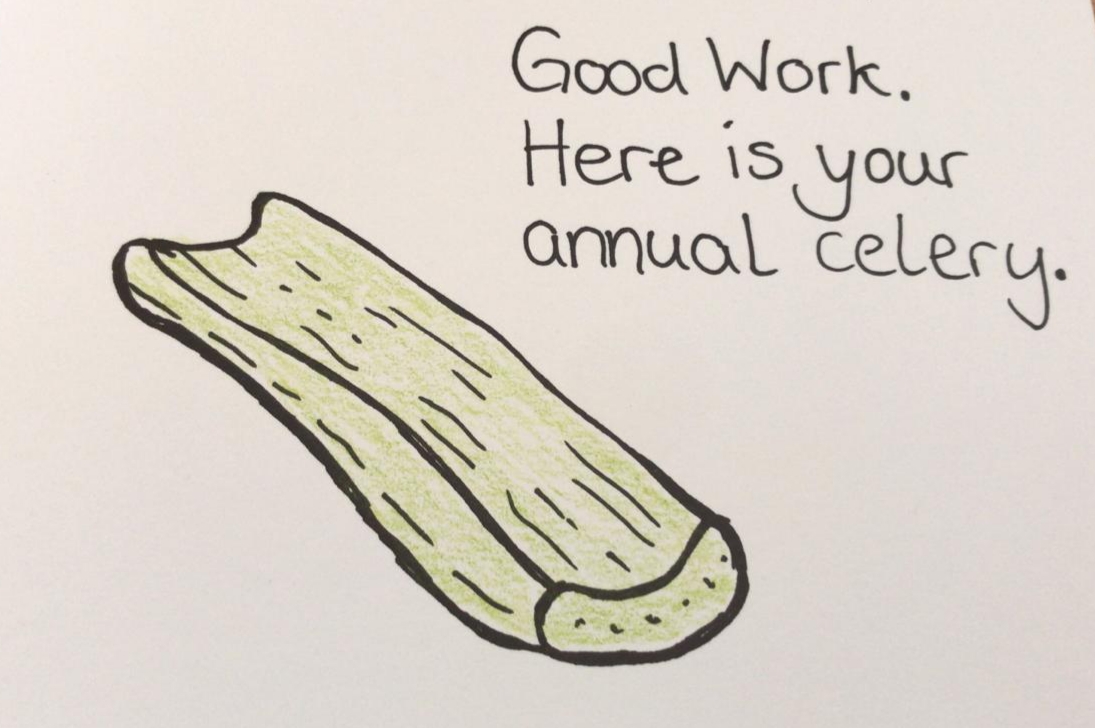 Good Work.
Here is your
annual celery.